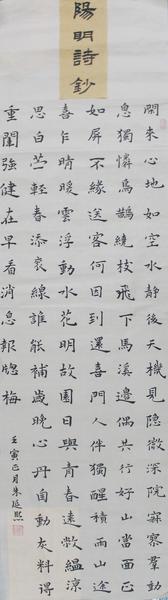 陽明詩鈔
閑來心地如空水靜後天機見隱微深院寂寥羣動
息獨憐烏鵲繞枝飛下馬溪邊偶共行好山當面正
如屏不緣送客何因到還喜門人伴獨醒積雨山途
喜乍晴暖雲浮動水花明故園日與青春遠敝縕涼
思白苧輕春添衮線誰能補歲晚心丹自動灰料得
重闈強健在早看消息報牕梅
壬寅正月朱延熙